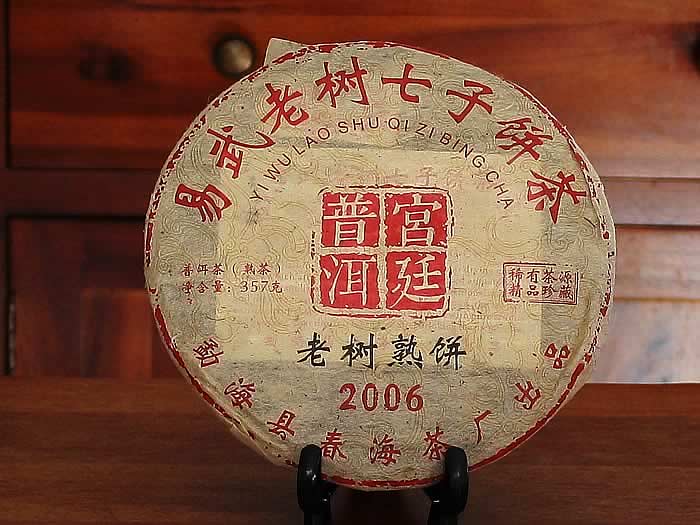 易武老树七子饼茶
YI WU LAO SHU QI ZI BING CHA
宫廷
普洱
普洱茶(熟茶)
净含量:357克
稀有茶源
精品珍藏
老树熟饼
2006
勐海县春海茶厂出品